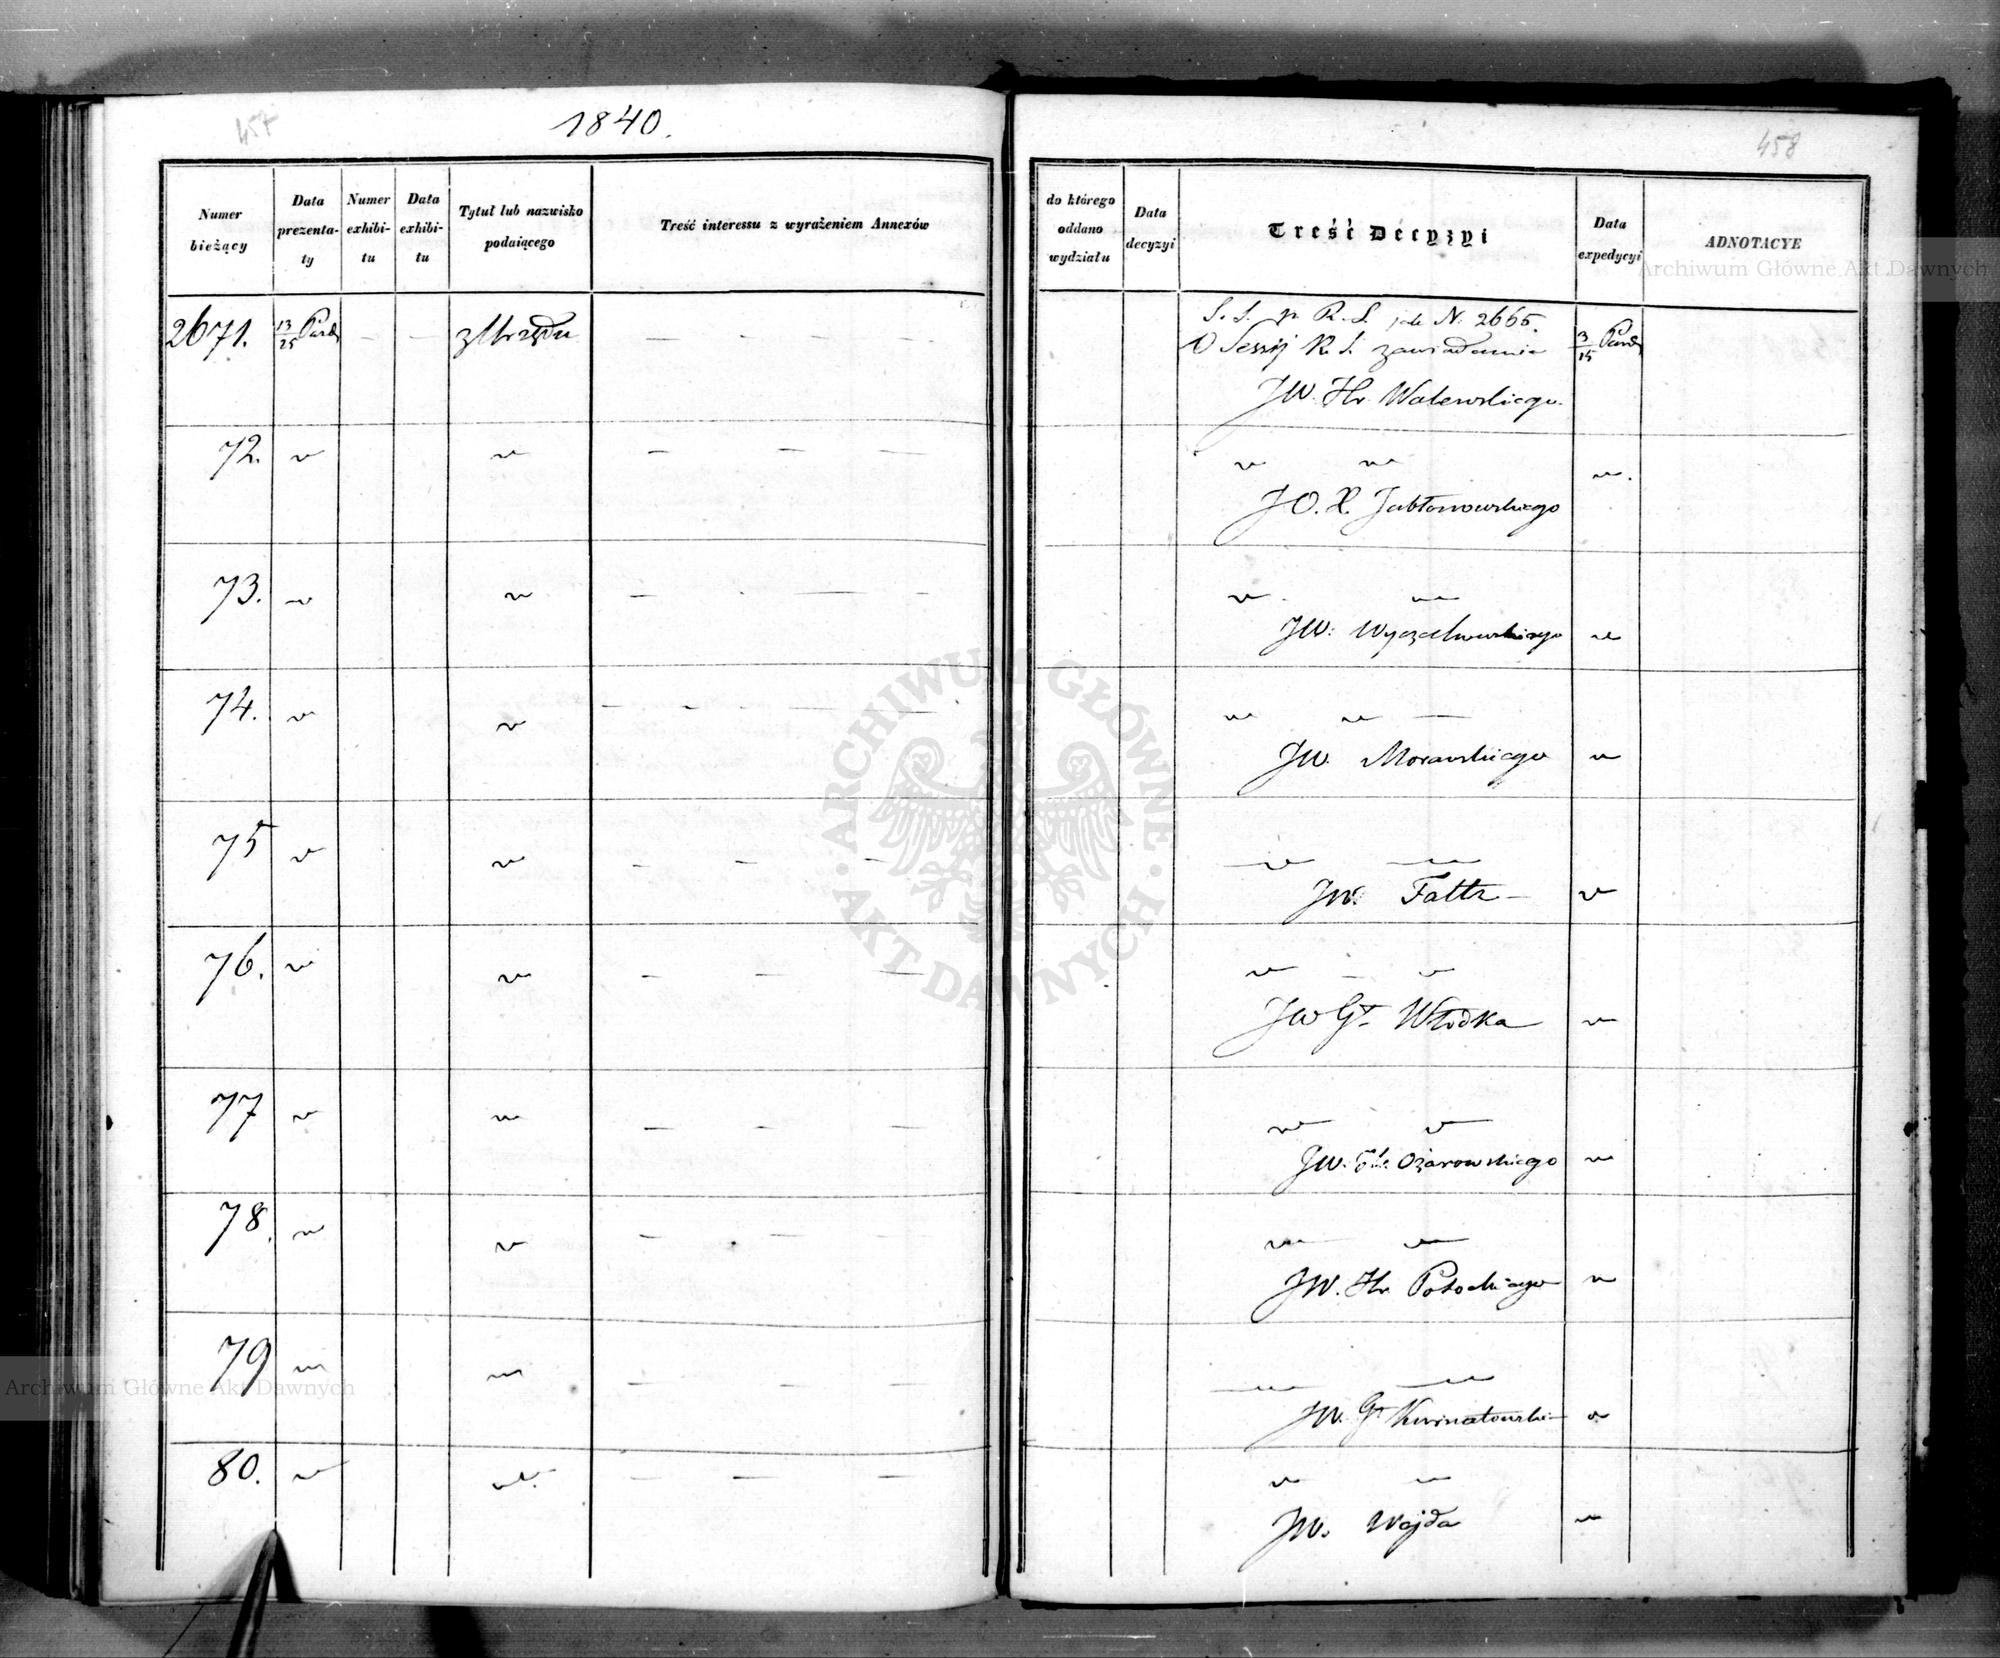 457
1840.
458
Numer bieżący
Data prezenta-ty
Numer exhibi-tu
Data exhibi-tu
Tytuł lub nazwisko podaiącego
Treść interessu z wyrażeniem Annexów
do którego oddano wydziału
Data decyzyi
Treść Decyzyi
Data expedycyi
ADNOTACYE
2671. 13/25 Paźd — — z Urzędu — — — —
S. S. p. R. S. jak N. 2665.
O Sessij R. S. zawiadamia 3/15 Paźd
JW. Hr. Walewskiego.
72.
JO. X. Jabłonowskiego
73.
JW: Wyczechowskiego
74.
JW. Morawskiego
75
JW. Faltz
76.
JW Gł. Włodka
77
JW. Ożarowskiego
78.
JW. Hr. Potockiego
79
JW. Gł Kurnatowski
80.
JW. Wojda
ARCHIWUM GŁÓWNE
AKT DAWNYCH
Archiwum Główne Akt Dawnych
Archiwum Główne Akt Dawnych